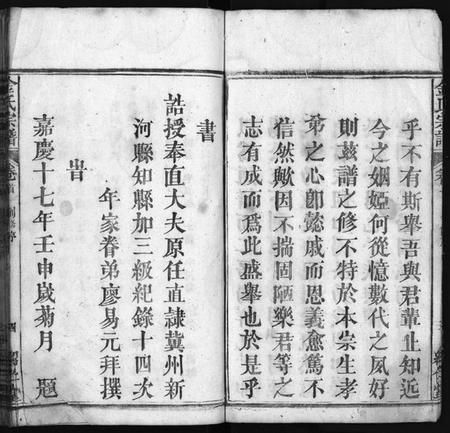 乎不有斯舉吾與君輩止知近
今之姻婭何從憶數代之夙好
則茲譜之修不特於本宗生孝
弟之心卽懿戚而恩義愈篤不
信然歟因不揣固陋樂君等之
志有成而爲此盛舉也於是乎
書
誥授奉直大夫原任直隷冀州新
河縣知縣加三級紀錄十四次
年家眷弟廖易元拜撰
旹
嘉慶十七年壬申歲菊月 題
金氏宗譜
卷首
四
金氏宗譜